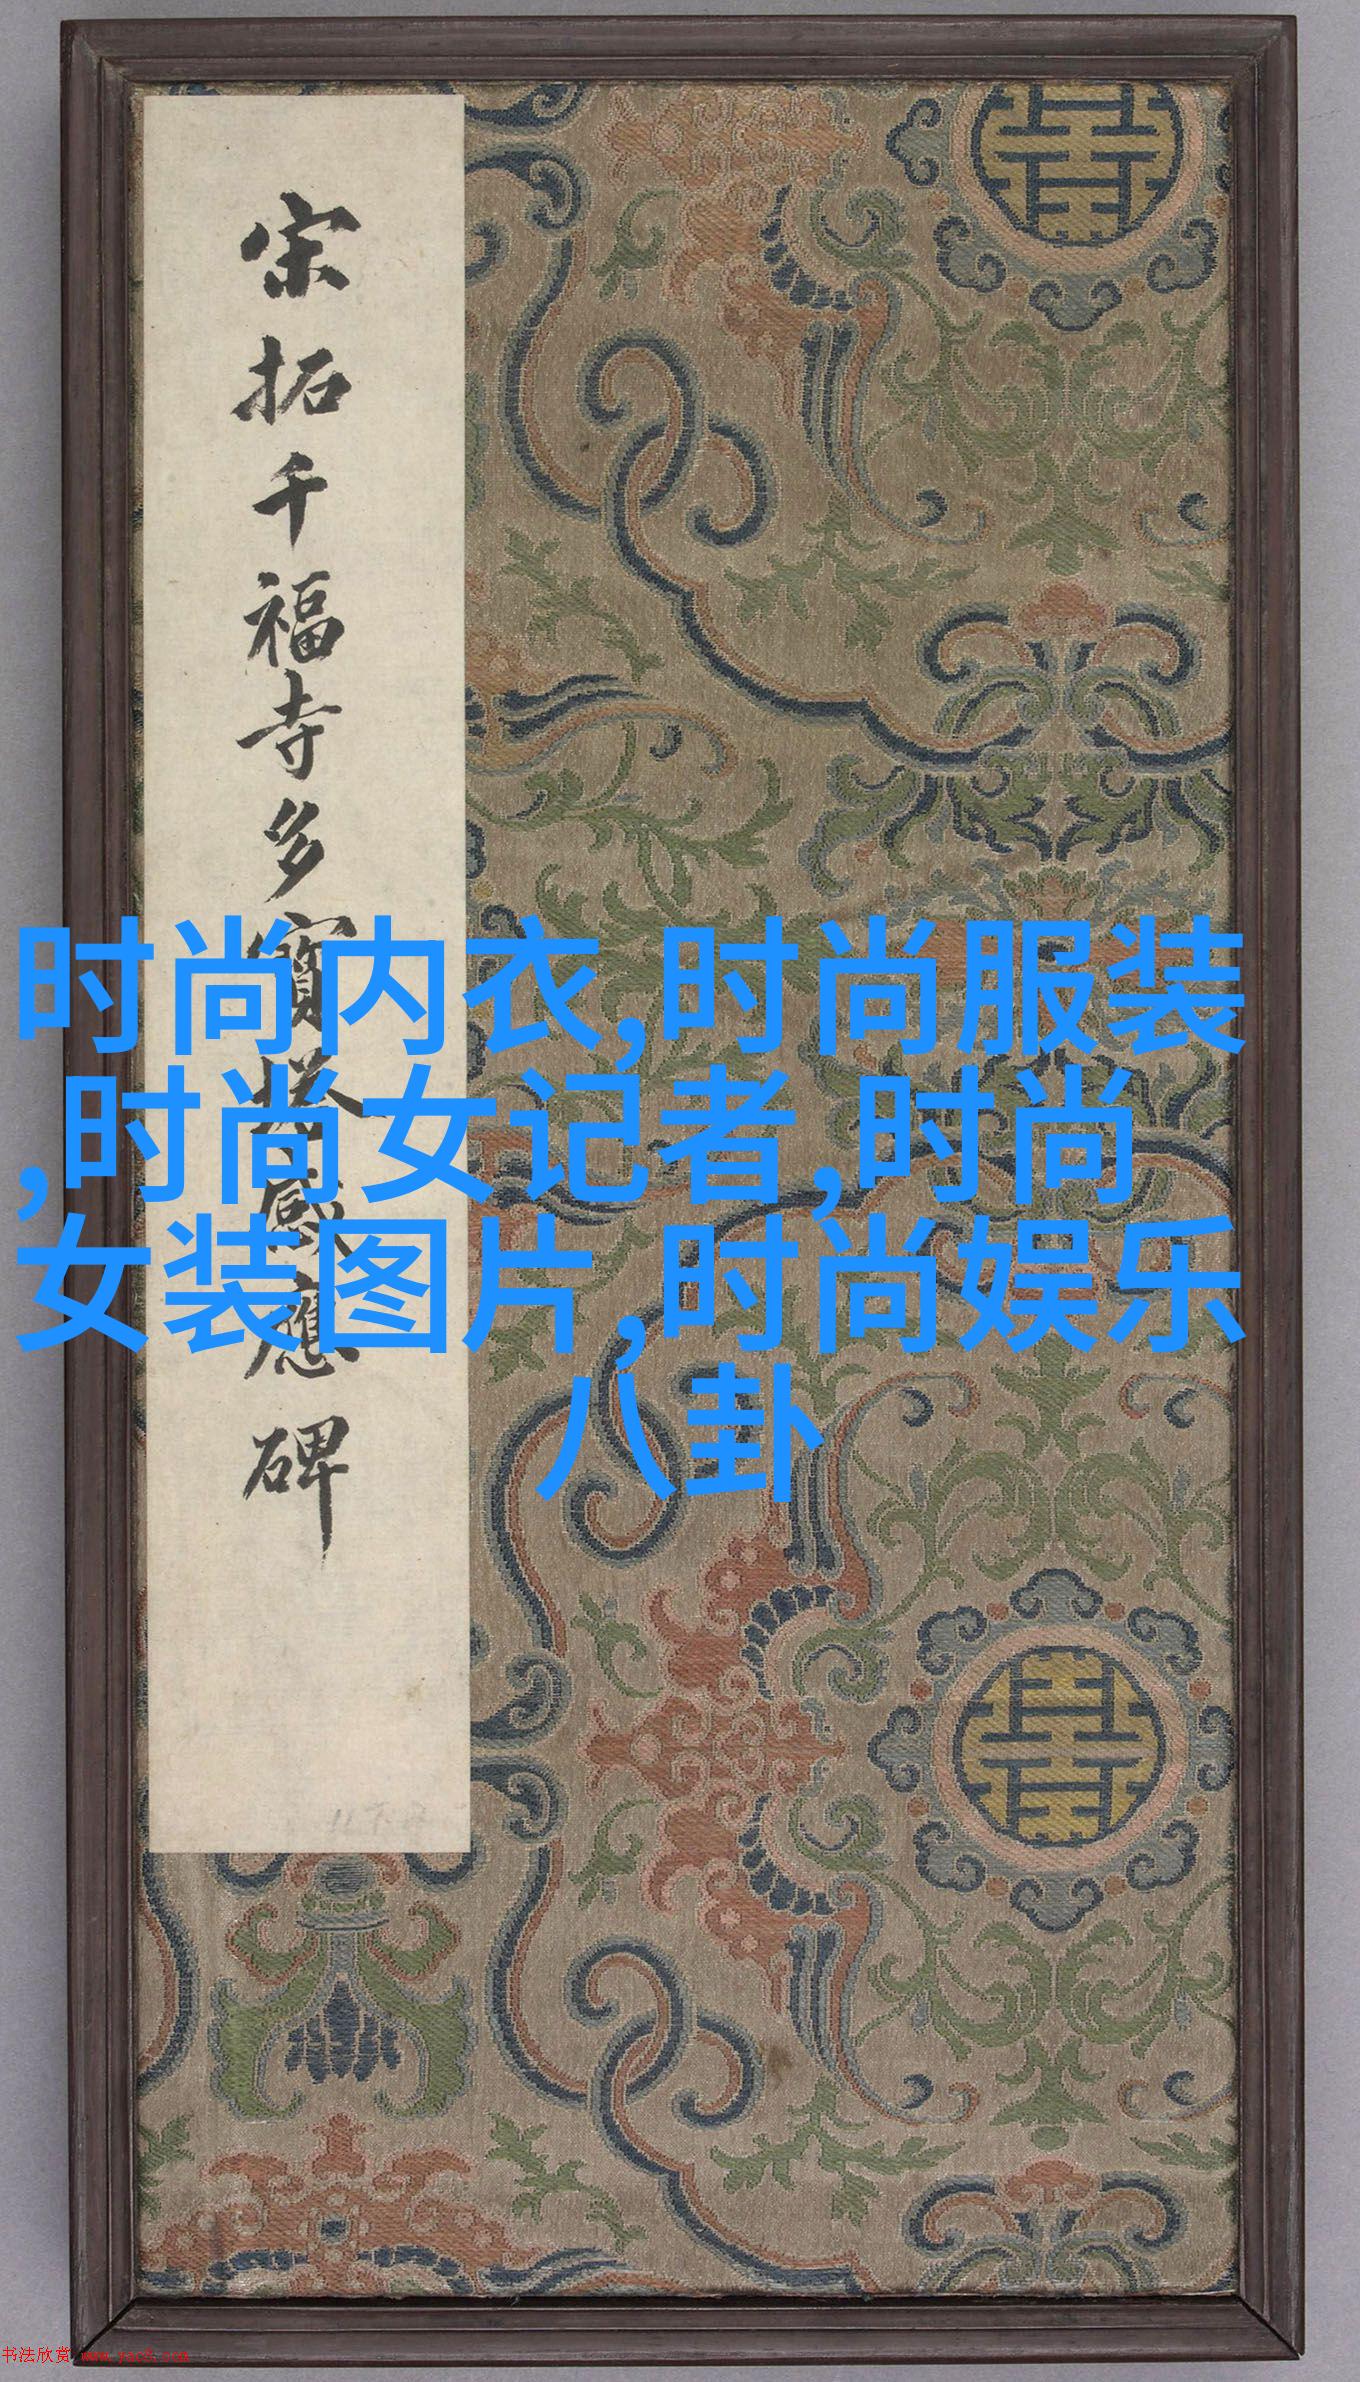 宋拓千福寺多寶塔感應碑
时尚内衣,时尚服装
,时尚女记者,时尚
女装图片,时尚娱乐
八卦
书法欣赏 www.yac8.com